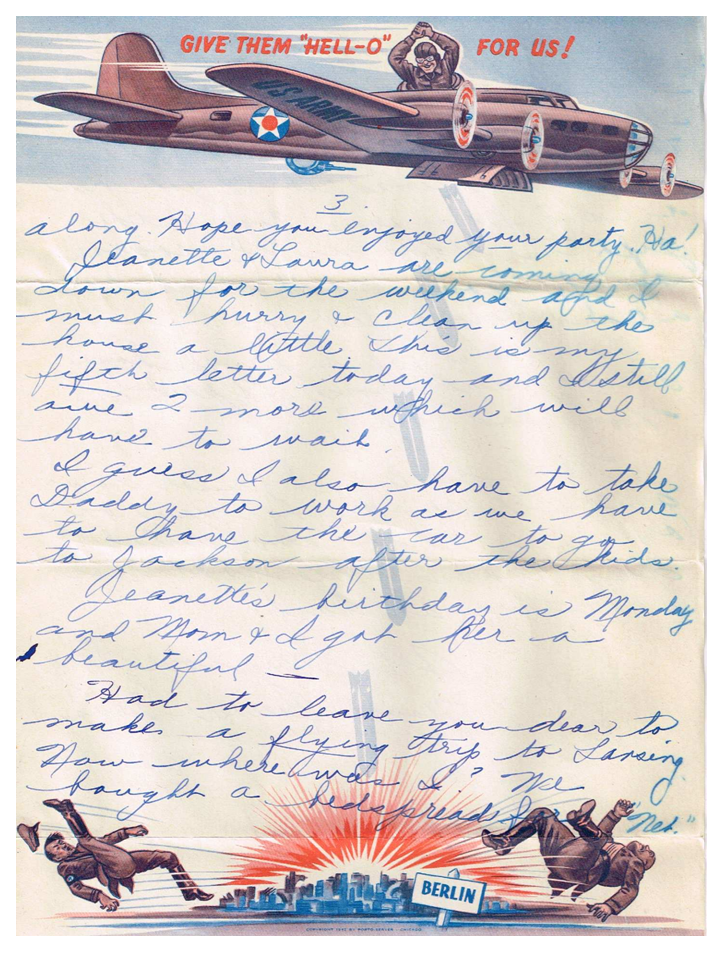 GIVE THEM "HELL-O" FOR US!
U.S. ARMY
3.
along. Hope you enjoyed your party. Ha!
Jeanette & Laura are coming
down for the weekend and I
must hurry & clean up the
house a little This is my
fifth letter today and I still
owe 2 more which will
have to wait.
I guess I also have to take
Daddy to work as we have
to have the car to go
to Jackson after the kids.
Jeanette's birthday is Monday
and Mom & I got her a
beautiful —
Had to leave you dear to
make a flying trip to Lansing.
Now where was I? We
bought a bedspread for "Net."
BERLIN
COPYRIGHT 1942 BY CHICAGO